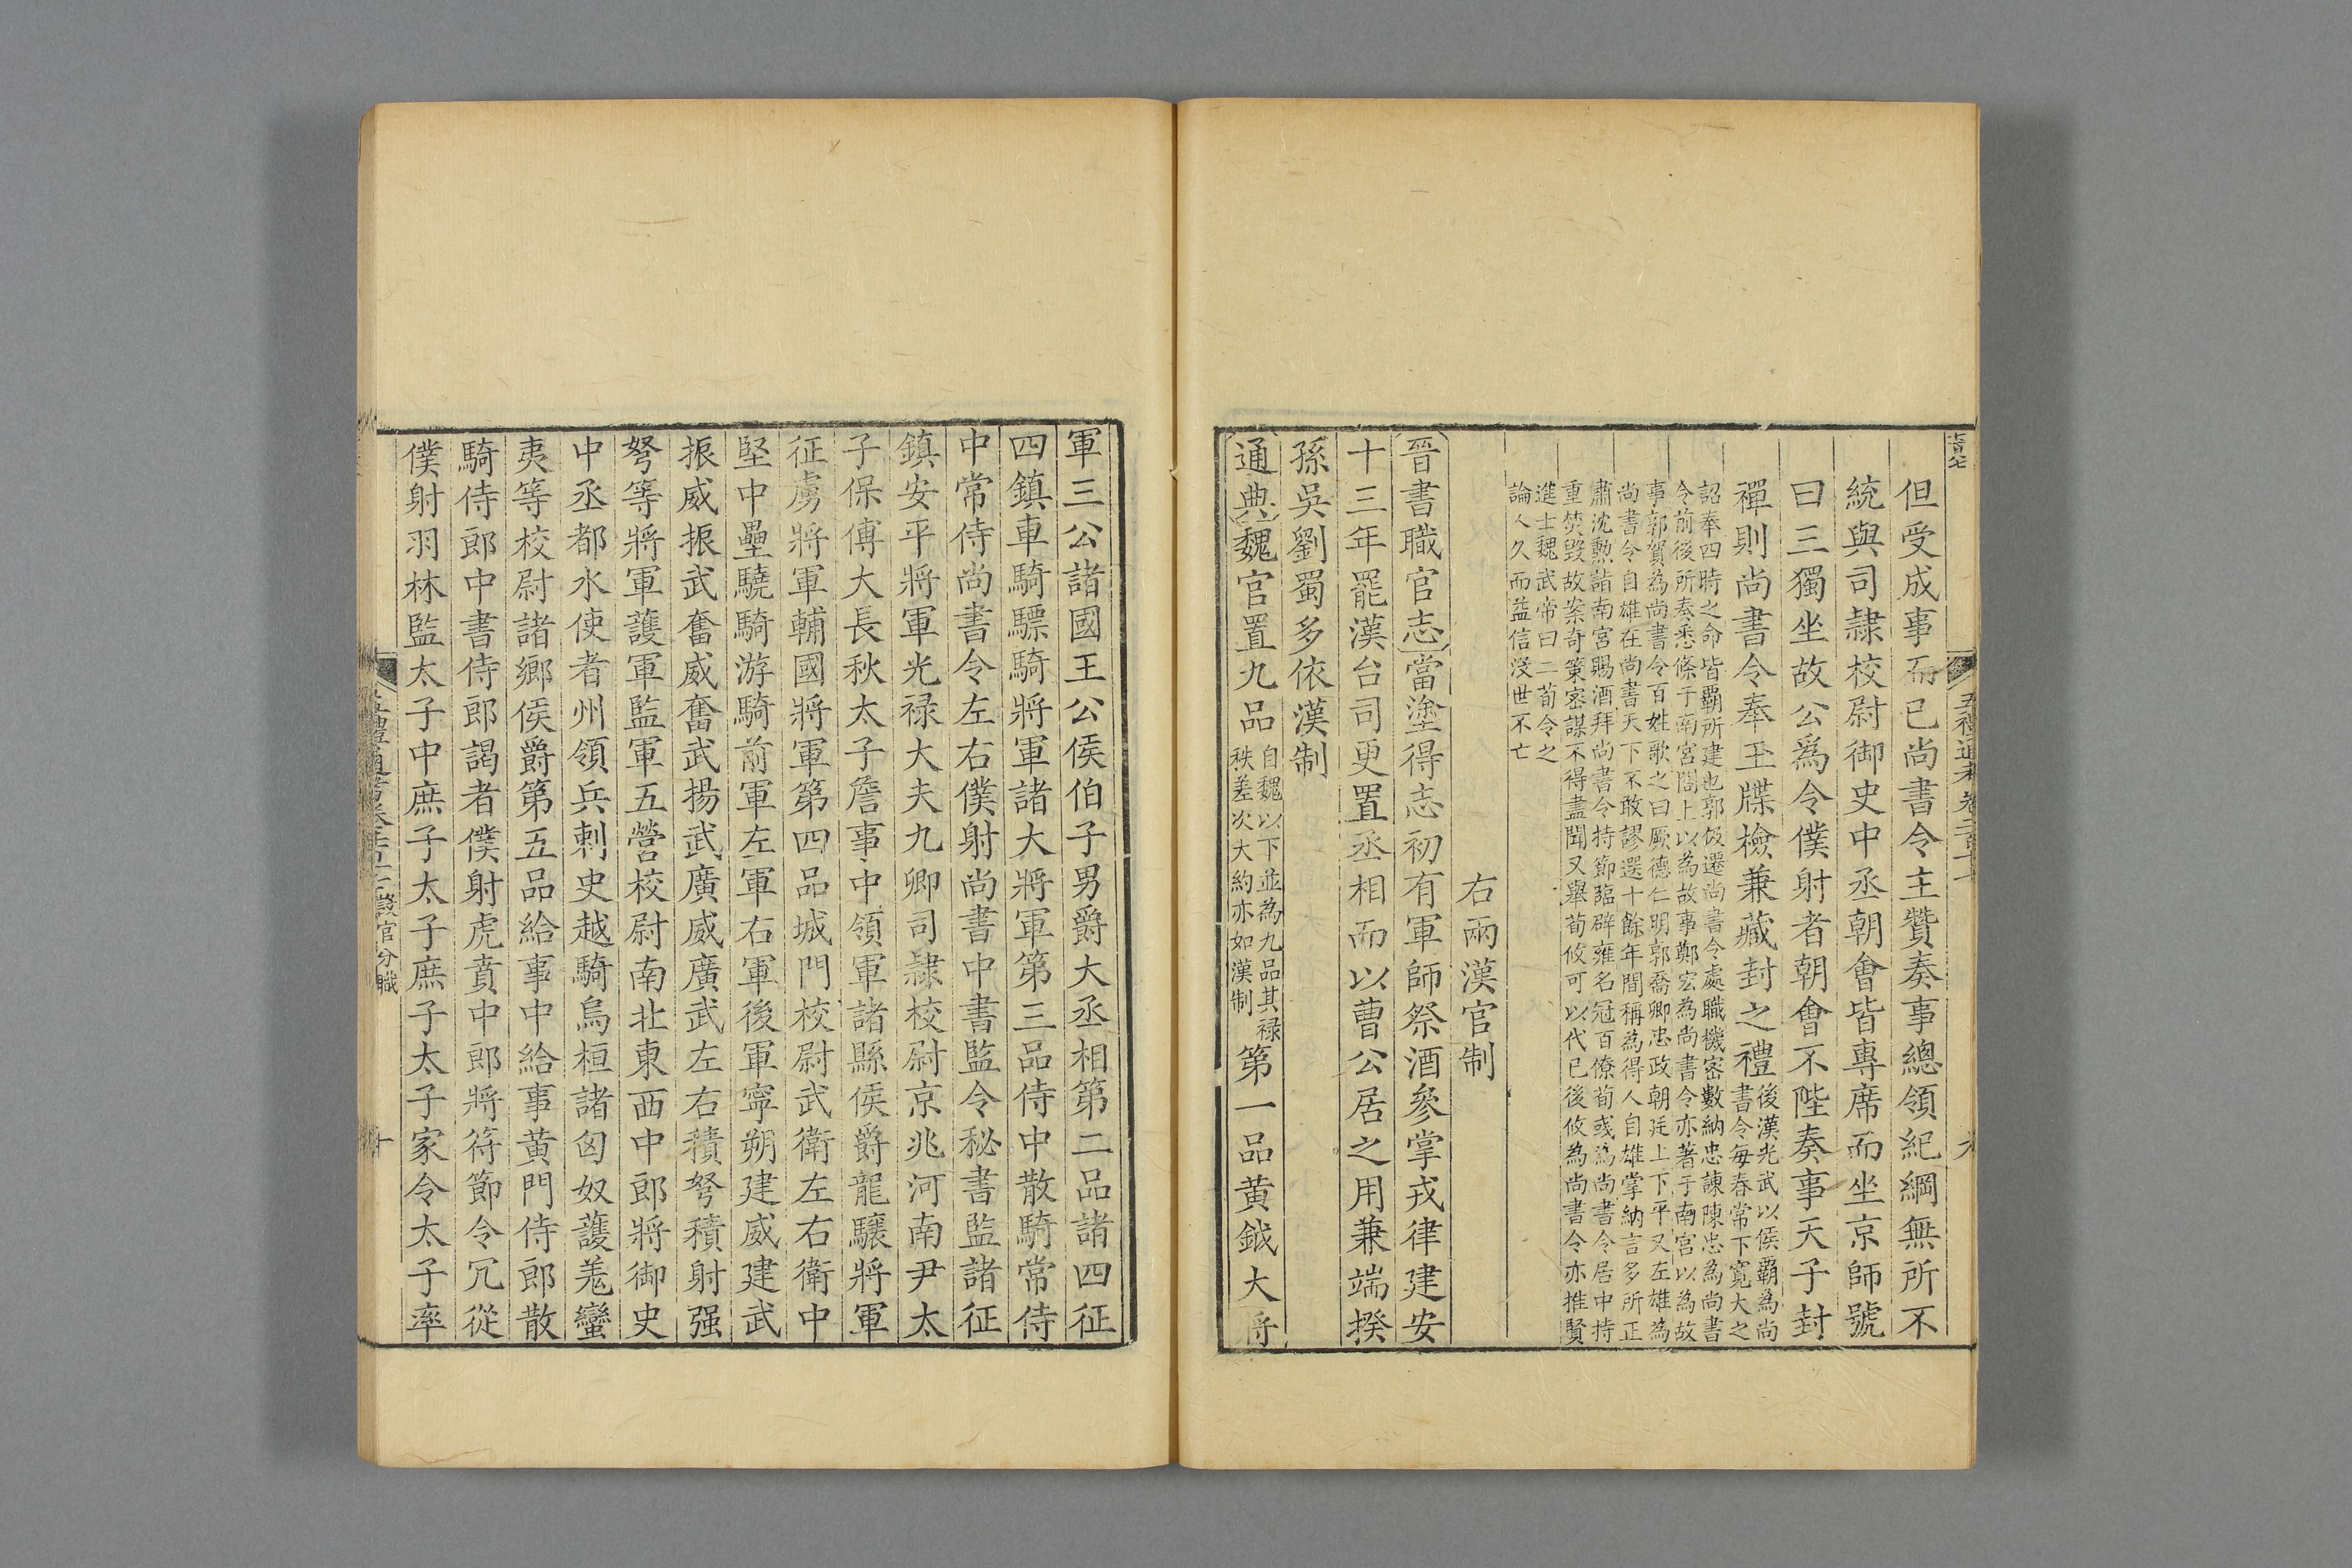 但受成事而已尚書令主贊奏事總領紀綱無所不
統與司隷校尉御史中丞朝會皆專席而坐京師號
曰三獨坐故公爲令僕射者朝會不陛奏事天子封
禪則尚書令奉玉牒檢兼藏封之禮後漢光武以侯覇為尚
書令每春常下寛大之
詔奉四時之命皆覇所建也郭伋遷尚書令處職機密數納忠諫陳忠為尚書
令前後所奏悉條于南宮閣上以為故事鄭宏為尚書令亦著于南宮以為故
事郭賀為尚書令百姓歌之曰厥德仁明郭喬卿忠政朝廷上下平又左雄為
尚書令自雄在尚書天下不敢謬選十餘年間稱為得人自雄掌納言多所正
肅沈勲詣南宮賜酒拜尚書令持節臨辟雍名冠百僚荀彧為尚書令居中持
重焚毁故案奇策密謀不得盡聞又舉荀攸可以代已後攸為尚書令亦推賢
進士魏武帝曰二荀令之
論人久而益信没世不亡
右兩漢官制
晉書職官志當塗得志初有軍師祭酒參掌戎律建安
十三年罷漢台司更置丞相而以曹公居之用兼端揆
孫吳劉蜀多依漢制
通典魏官置九品自魏以下並為九品其禄
秩差次大約亦如漢制第一品黄鉞大將
五禮通考卷二百十七
九
軍三公諸國王公侯伯子男爵大丞相第二品諸四征
四鎮車騎驃騎將軍諸大將軍第三品侍中散騎常侍
中常侍尚書令左右僕射尚書中書監令秘書監諸征
鎮安平將軍光禄大夫九卿司隷校尉京兆河南尹太
子保傅大長秋太子詹事中領軍諸縣侯爵龍驤將軍
征虜將軍輔國將軍第四品城門校尉武衛左右衛中
堅中壘驍騎游騎前軍左軍右軍後軍寧朔建威建武
振威振武奮威奮武揚武廣威廣武左右積弩積射强
弩等將軍護軍監軍五營校尉南北東西中郎將御史
中丞都水使者州領兵刺史越騎烏桓諸匈奴護羗蠻
夷等校尉諸鄉侯爵第五品給事中給事黄門侍郎散
騎侍郎中書侍郎謁者僕射虎賁中郎將符節令冗從
僕射羽林監太子中庶子太子庶子太子家令太子率
設官分職
十